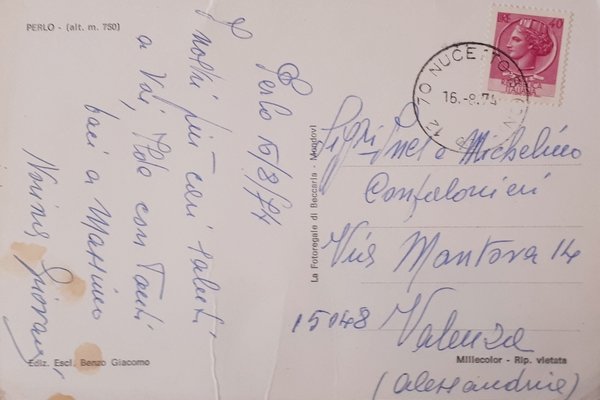 PERLO - (alt. m. 750)
Perlo 15/8/74
I nostri più cari saluti
a Voi, Ilde con Tanti
baci a Massimo
Nonna Giovanni
Ediz. Escl. Benzo Giacomo
La Fotoregale di Beccaria - Mondovì
LIRE 40
ITALIANA
12070 NUCETTO
16.-8.74
Sigg.ri Ines e Michelino
Confalonieri
Via Mantova 14
15048 Valenza
(Alessandria)
Millecolor - Rip. vietata